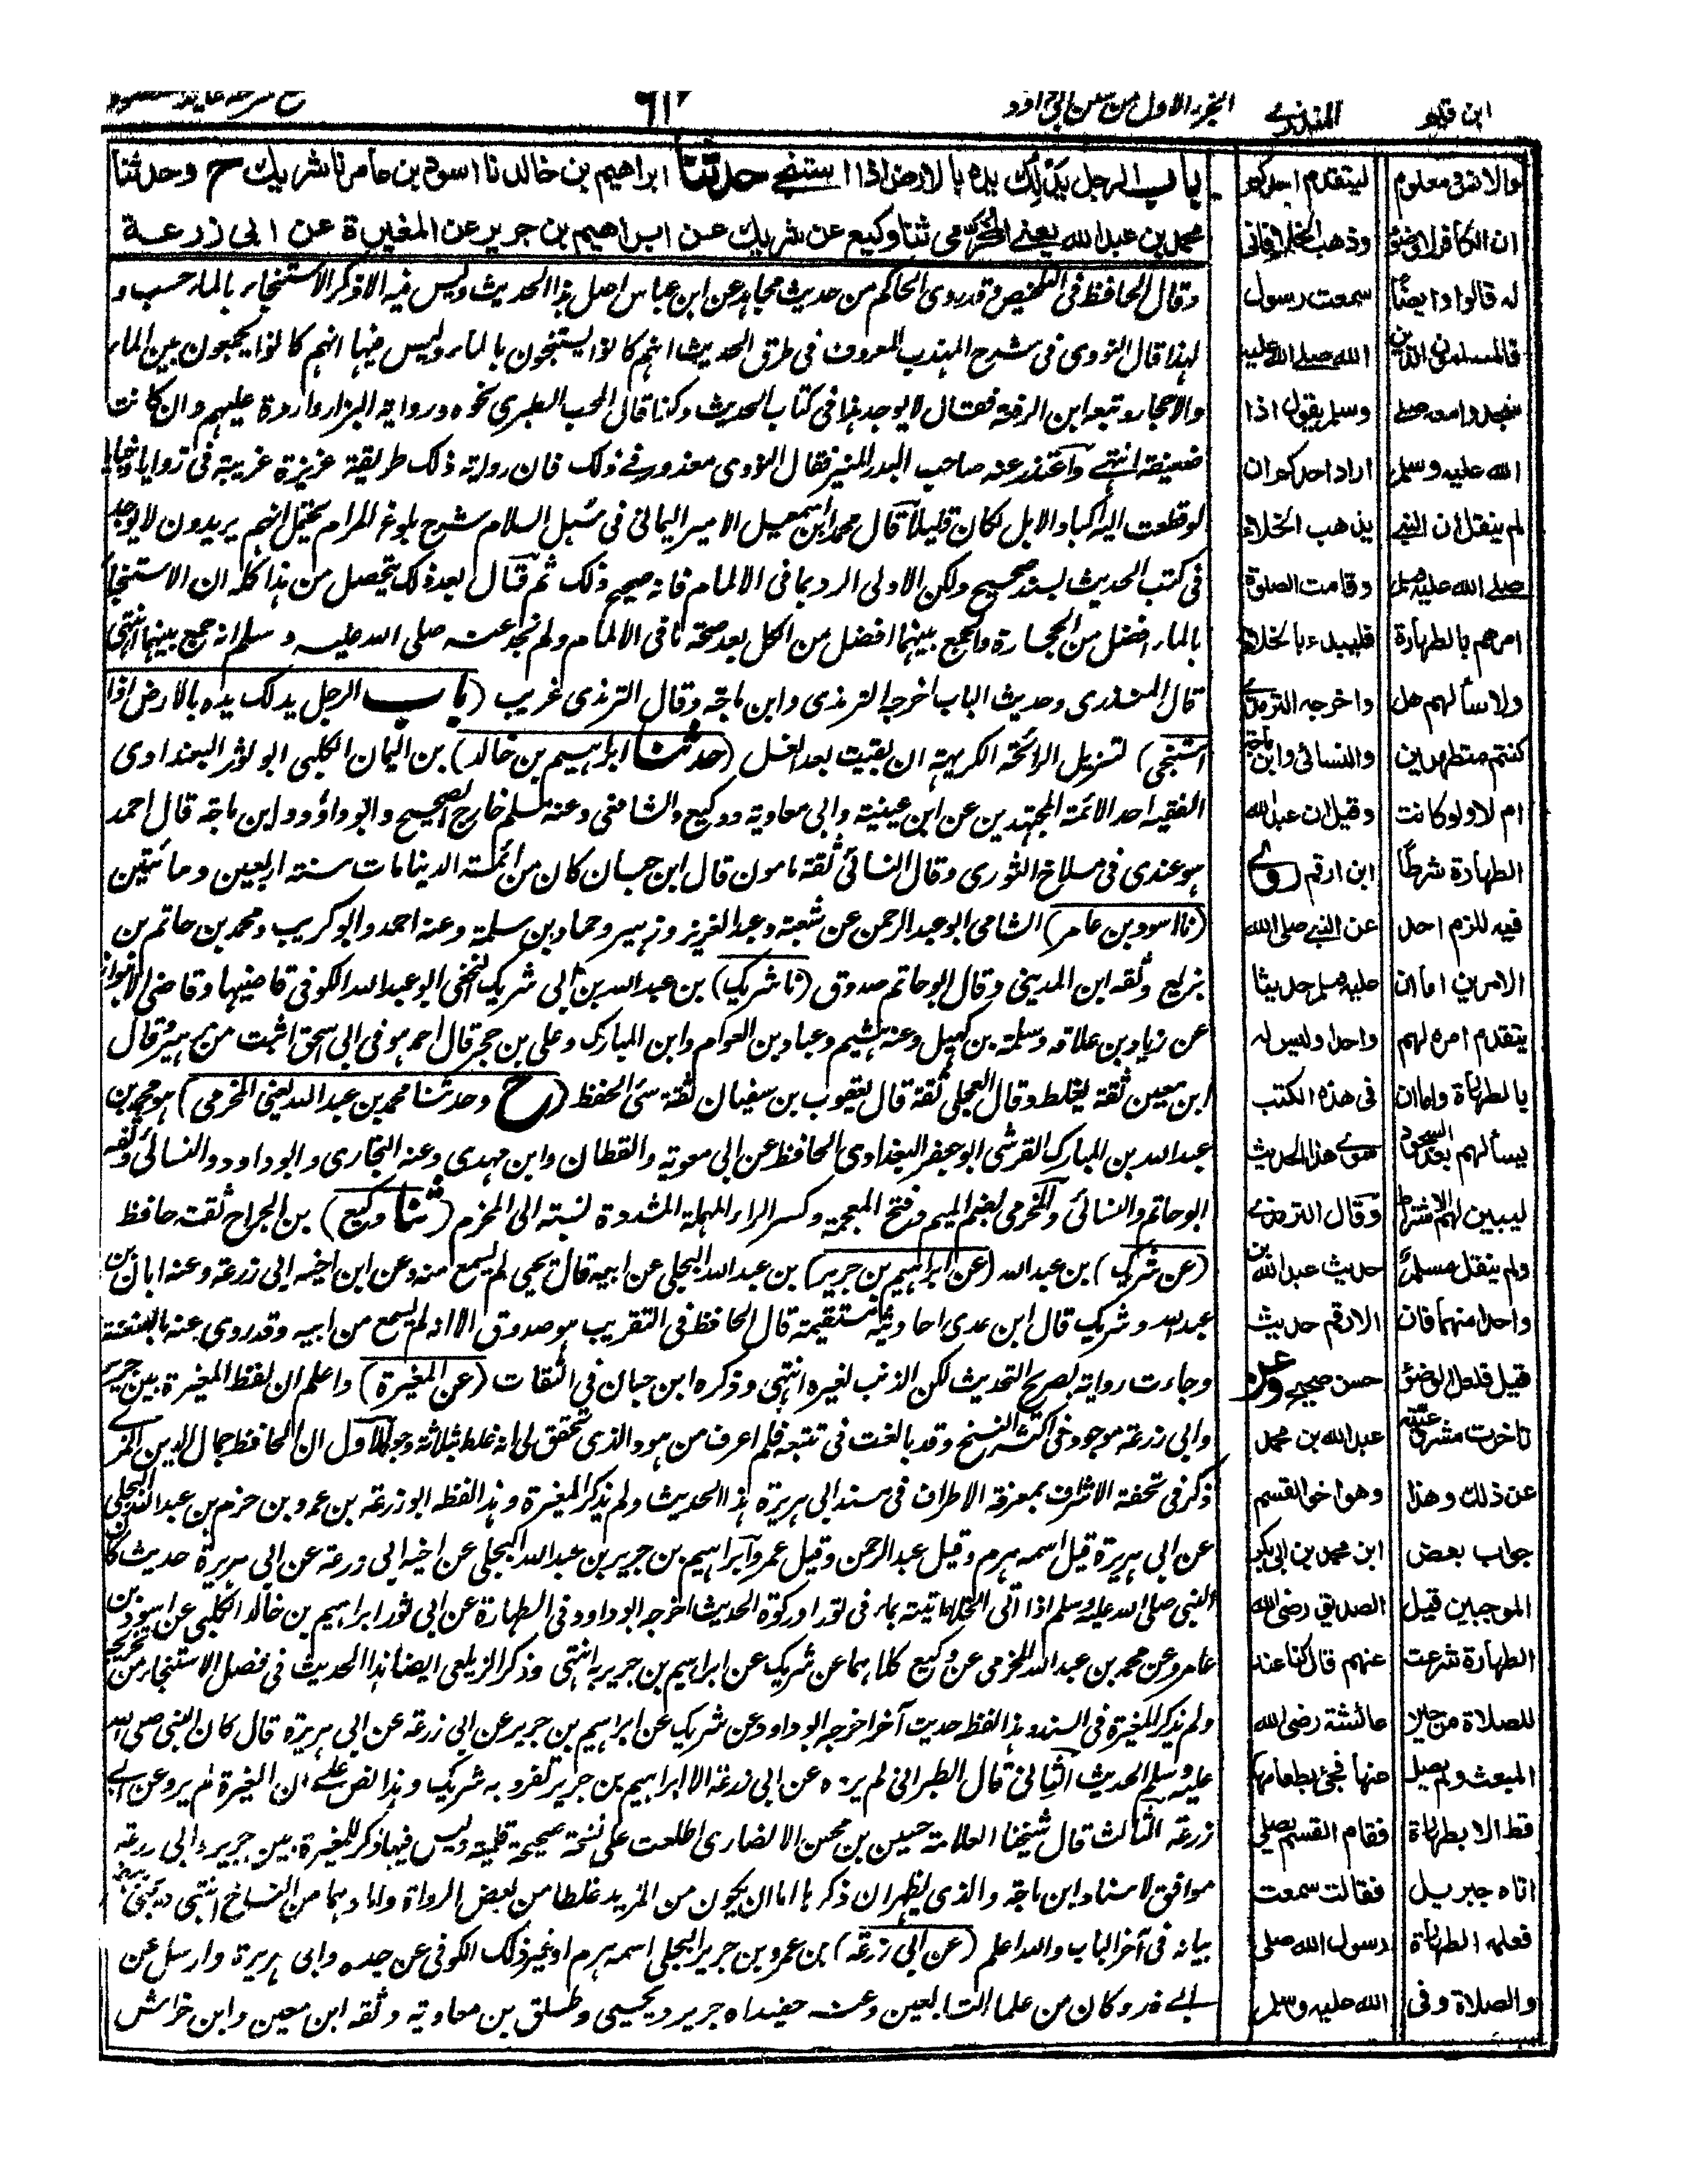 ابن قيم
المنذري
الجزء الاول من سنن ابي داود
باب الرجل يدلك يده بالارض اذا استنجى حدثنا ابراهيم بن خالد نا اسود بن عامر نا شريك ح وحدثنا
محمد بن عبد الله يعني المخرمي ثنا وكيع عن شريك عن ابراهيم بن جرير عن المغيرة عن ابي زرعة
وقال الحافظ في التلخيص وقد روى الحاكم من حديث مجاهد عن ابن عباس اصل هذا الحديث وليس فيه الا ذكر الاستنجاء بالماء حسب و
لهذا قال النووي في شرح المهذب المعروف في طرق الحديث انهم كانوا يستنجون بالماء وليس فيها انهم كانوا يجمعون بين الماء
والاحجار وتبعه ابن الرفعة فقال لا يوجد هذا في كتاب الحديث وكذا قال المحب الطبري نحوه ورواية البزار واردة عليهم وان كانت
ضعيفة انتهى واعتذر عنه صاحب البدر المنير فقال النووي معذور في ذلك فان رواية ذلك طريقة عزيزة غريبة في زوايا وخبايا
لو قطعت اليه اكباد الابل لكان قليلا قال محمد ابن اسمعيل الامير اليماني في سبل السلام شرح بلوغ المرام يحتمل انهم يريدون لا يوجد
في كتب الحديث بسند صحيح ولكن الاولى الرد بما في الالمام فانه صحح ذلك ثم قال بعد ذلك يتحصل من هذا كله ان الاستنجاء
بالماء افضل من الحجارة والجمع بينهما افضل من الكل بعد صحة ما في الالمام ولم نجد عنه صلى الله عليه وسلم انه جمع بينهما انتهى
قال المنذري وحديث الباب اخرجه الترمذي وابن ماجة وقال الترمذي غريب (باب الرجل يدلك يده بالارض اذا
استنجى) لتزيل الرائحة الكريهة ان بقيت بعد الغسل (حدثنا ابراهيم بن خالد) بن اليمان الكلبي ابو ثور البغدادي
الفقيه احد الائمة المجتهدين عن ابن عيينة وابي معاوية ووكيع والشافعي وعنه مسلم خارج الصحيح وابو داود وابن ماجة قال احمد
هو عندي في مسلاخ الثوري وقال النسائي ثقة مامون قال ابن حبان كان من ائمة الدنيا مات سنة اربعين ومائتين
(نا اسود بن عامر) الشامي ابو عبد الرحمن عن شعبة وعبد العزيز وزهير وحماد بن سلمة وعنه احمد وابو كريب ومحمد بن حاتم بن
بزيع وثقه ابن المديني وقال ابو حاتم صدوق (نا شريك) بن عبد الله بن ابي شريك النخعي ابو عبد الله الكوفي قاضيها وقاضي الاهواز
عن زياد بن علاقة وسلمة بن كهيل وعنه هشيم وعباد بن العوام وابن المبارك وعلي بن حجر قال احمد هو في ابي اسحق اثبت من زهير وقال
ابن معين ثقة يغلط وقال العجلي ثقة قال يعقوب بن سفيان ثقة سئ الحفظ (ح وحدثنا محمد بن عبد الله يعني المخرمي) هو محمد بن
عبد الله بن المبارك القرشي ابو جعفر البغدادي الحافظ عن ابي معوية والقطان وابن مهدي وعنه البخاري وابو داود والنسائي وثقه
ابو حاتم والنسائي والمخرمي بضم الميم وفتح المعجمة وكسر الراء المهملة المشددة نسبته الى المخرم (ثنا وكيع) بن الجراح ثقة حافظ
(عن شريك) بن عبد الله (عن ابراهيم بن جرير) بن عبد الله البجلي عن ابيه قال يحيى لم يسمع منه وعن ابن اخيه ابي زرعة وعنه ابان بن
عبد الله وشريك قال ابن عدي احاديثه مستقيمة قال الحافظ في التقريب هو صدوق الا انه لم يسمع من ابيه وقد روى عنه بالعنعنة
وجاءت رواية بصريح التحديث لكن الذنب لغيره انتهى وذكره ابن حبان في الثقات (عن المغيرة) واعلم ان لفظ المغيرة بين جرير
وابي زرعة موجود في اكثر النسخ وقد بالغت في تتبعه فلم اعرف من هو والذي تحقق لي انه غلط بثلاثة وجوه الاول ان الحافظ جمال الدين المزي
ذكر في تحفة الاشراف بمعرفة الاطراف في مسند ابي هريرة هذا الحديث ولم يذكر المغيرة وهذا لفظه ابو زرعة بن عمرو بن حزم بن عبد الله البجلي
عن ابي هريرة قيل اسمه هرم وقيل عبد الرحمن وقيل عمرو ابراهيم بن جرير بن عبد الله البجلي عن اخيه ابي زرعة عن ابي هريرة حديث كان
النبي صلى الله عليه وسلم اذا اتى الخلاء اتيته بماء في تور او ركوة الحديث اخرجه ابو داود في الطهارة عن ابي ثور ابراهيم بن خالد الكلبي عن اسود بن
عامر وعن محمد بن عبد الله المخرمي عن وكيع كلاهما عن شريك عن ابراهيم بن جرير به انتهى وذكر الزيلعي ايضا هذا الحديث في فصل الاستنجاء من تخريجه
ولم يذكر المغيرة في السند وهذا لفظه حديث آخر اخرجه ابو داود عن شريك عن ابراهيم بن جرير عن ابي زرعة عن ابي هريرة قال كان النبي صلى الله
عليه وسلم الحديث الثاني قال الطبراني لم يروه عن ابي زرعة الا ابراهيم بن جرير تفرد به شريك وهذا نص على ان المغيرة لم يرو عن ابي
زرعة الثالث قال شيخنا العلامة حسين بن محسن الانصاري اطلعت على نسخة صحيحة قلمية وليس فيها ذكر للمغيرة بين جرير وابي زرعة
موافق لاسناد ابن ماجة والذي يظهر ان ذكرها اما ان يكون من المزيد غلطا من بعض الرواة واما وهما من النساخ انتهى
بيانه في آخر الباب والله اعلم (عن ابي زرعة) بن عمرو بن جرير البجلي اسمه هرم او غير ذلك الكوفي عن جده وابي هريرة وارسل عن
ابي ذر وكان من علماء التابعين وعنه حفيداه جرير ويحيى وطلق بن معاوية وثقه ابن معين وابن خراش
ليتقدم احدكم
وذهب الخلاء فاني
سمعت رسول
الله صلى الله عليه
وسلم يقول اذا
اراد احدكم ان
يذهب الخلاء
وقامت الصلوة
فليبدء بالخلاء
واخرجه الترمذي
والنسائي وابن ماجة
وقيل ان عبد الله
ابن ارقم روى
عن النبي صلى الله
عليه وسلم حديثا
واحدا وليس له
في هذه الكتب
سوى هذا الحديث
وقال الترمذي
حديث عبد الله بن
الارقم حديث
حسن صحيح وعن
عبد الله بن محمد
وهو اخو القسم
ابن محمد بن ابي بكر
الصديق رضي الله
عنهم قال كنا عند
عائشة رضي الله
عنها فجئ بطعامها
فقام القسم يصلي
فقالت سمعت
رسول الله صلى
الله عليه وسلم
والاثر في معلوم
ان الكافر لا وضوء
له قالوا وايضا
فالمسلمون الذين
سجدوا معه صلى
الله عليه وسلم
لم ينقل ان النبي
صلى الله عليه وسلم
امرهم بالطهارة
ولا سألهم هل
كنتم متطهرين
ام لا ولو كانت
الطهارة شرطا
فيه للزم احد
الامرين اما ان
يتقدم امره لهم
بالطهارة واما ان
يسألهم بعد السجود
ليبين لهم الاشتراط
ولم ينقل مسلم
واحدا منهما فان
قيل فلعل الوضوء
تاخرت مشروعيته
عن ذلك وهذا
جواب بعض
الموجبين قيل
الطهارة شرعت
للصلاة من حين
المبعث ولم يصل
قط الا بطهارة
اتاه جبريل
فعلمه الطهارة
والصلاة وفي